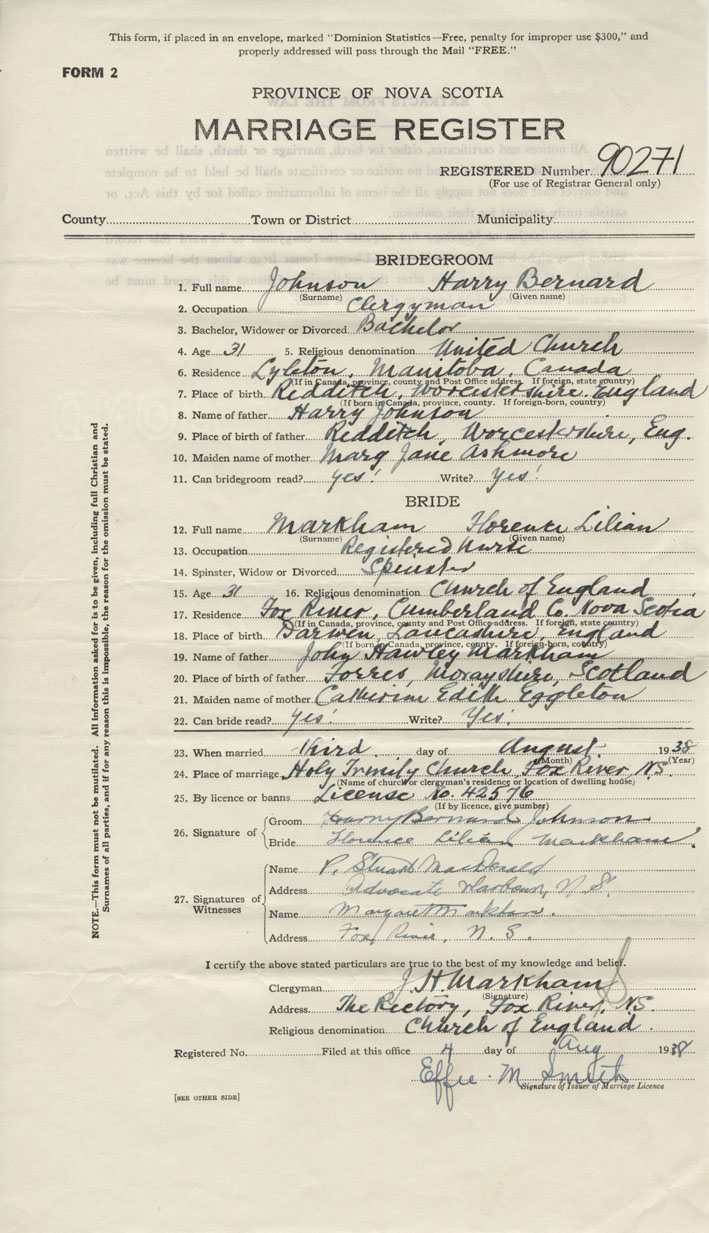 This form, if placed in an envelope, marked "Dominion Statistics—Free, penalty for improper use $300," and
properly addressed will pass through the Mail "FREE."
FORM 2
PROVINCE OF NOVA SCOTIA
MARRIAGE REGISTER
REGISTERED Number 90271
(For use of Registrar General only)
County Town or District Municipality
BRIDEGROOM
1. Full name Johnson Harry Bernard
(Surname) (Given name)
2. Occupation Clergyman
3. Bachelor, Widower or Divorced Bachelor
4. Age 31 5. Religious denomination United Church
6. Residence Lyleton, Manitoba, Canada
(If in Canada, province, county and Post Office address. If foreign, state country)
7. Place of birth Redditch, Worcestershire. England
(If born in Canada, province, county. If foreign-born, country)
8. Name of father Harry Johnson
9. Place of birth of father Redditch, Worcestershire, Eng.
10. Maiden name of mother Mary Jane Ashmore
11. Can bridegroom read? yes! Write? Yes!
BRIDE
12. Full name Markham Florence Lilian
(Surname) (Given name)
13. Occupation Registered Nurse
14. Spinster, Widow or Divorced Spinster
15. Age 31 16. Religious denomination Church of England
17. Residence Fox River, Cumberland Co. Nova Scotia
(If in Canada, province, county and Post Office address. If foreign, state country)
18. Place of birth Darwen, Lancashire, England
(If born in Canada, province, county. If foreign-born, country)
19. Name of father John Hawley Markham
20. Place of birth of father Forres, Morayshire, Scotland
21. Maiden name of mother Catherine Edith Eggleton
22. Can bride read? Yes! Write? Yes!
23. When married Third day of August 1938
(Month) (Year)
24. Place of marriage Holy Trinity Church, Fox River, N.S.
(Name of church or clergyman's residence or location of dwelling house)
25. By licence or banns License No. 42576
(If by licence, give number)
26. Signature of Groom Harry Bernard Johnson
Bride Florence Lilian Markham.
27. Signatures of Witnesses Name P. Stuart MacDonald
Address Advocate Harbour, N.S.
Name Margaret Markham.
Address Fox River, N.S.
I certify the above stated particulars are true to the best of my knowledge and belief.
Clergyman J. H. Markham
(Signature)
Address The Rectory, Fox River, N.S.
Religious denomination Church of England.
Registered No. Filed at this office 4 day of Aug 1938
Effie M Smith
Signature of Issuer of Marriage Licence
[SEE OTHER SIDE]
NOTE.—This form must not be mutilated. All information asked for is to be given, including full Christian and
Surnames of all parties, and if for any reason this is impossible, the reason for the omission must be stated.